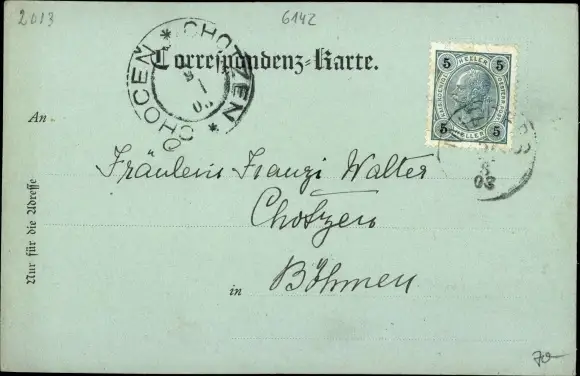 2013
6142
CHOTZEN * CHOCEN *
Correspondenz-Karte.
5 HELLER 5
5 HELLER 5
03
An
Fräulein Franzi Walter
Chotzen
in Böhmen
Nur für die Adresse
70-